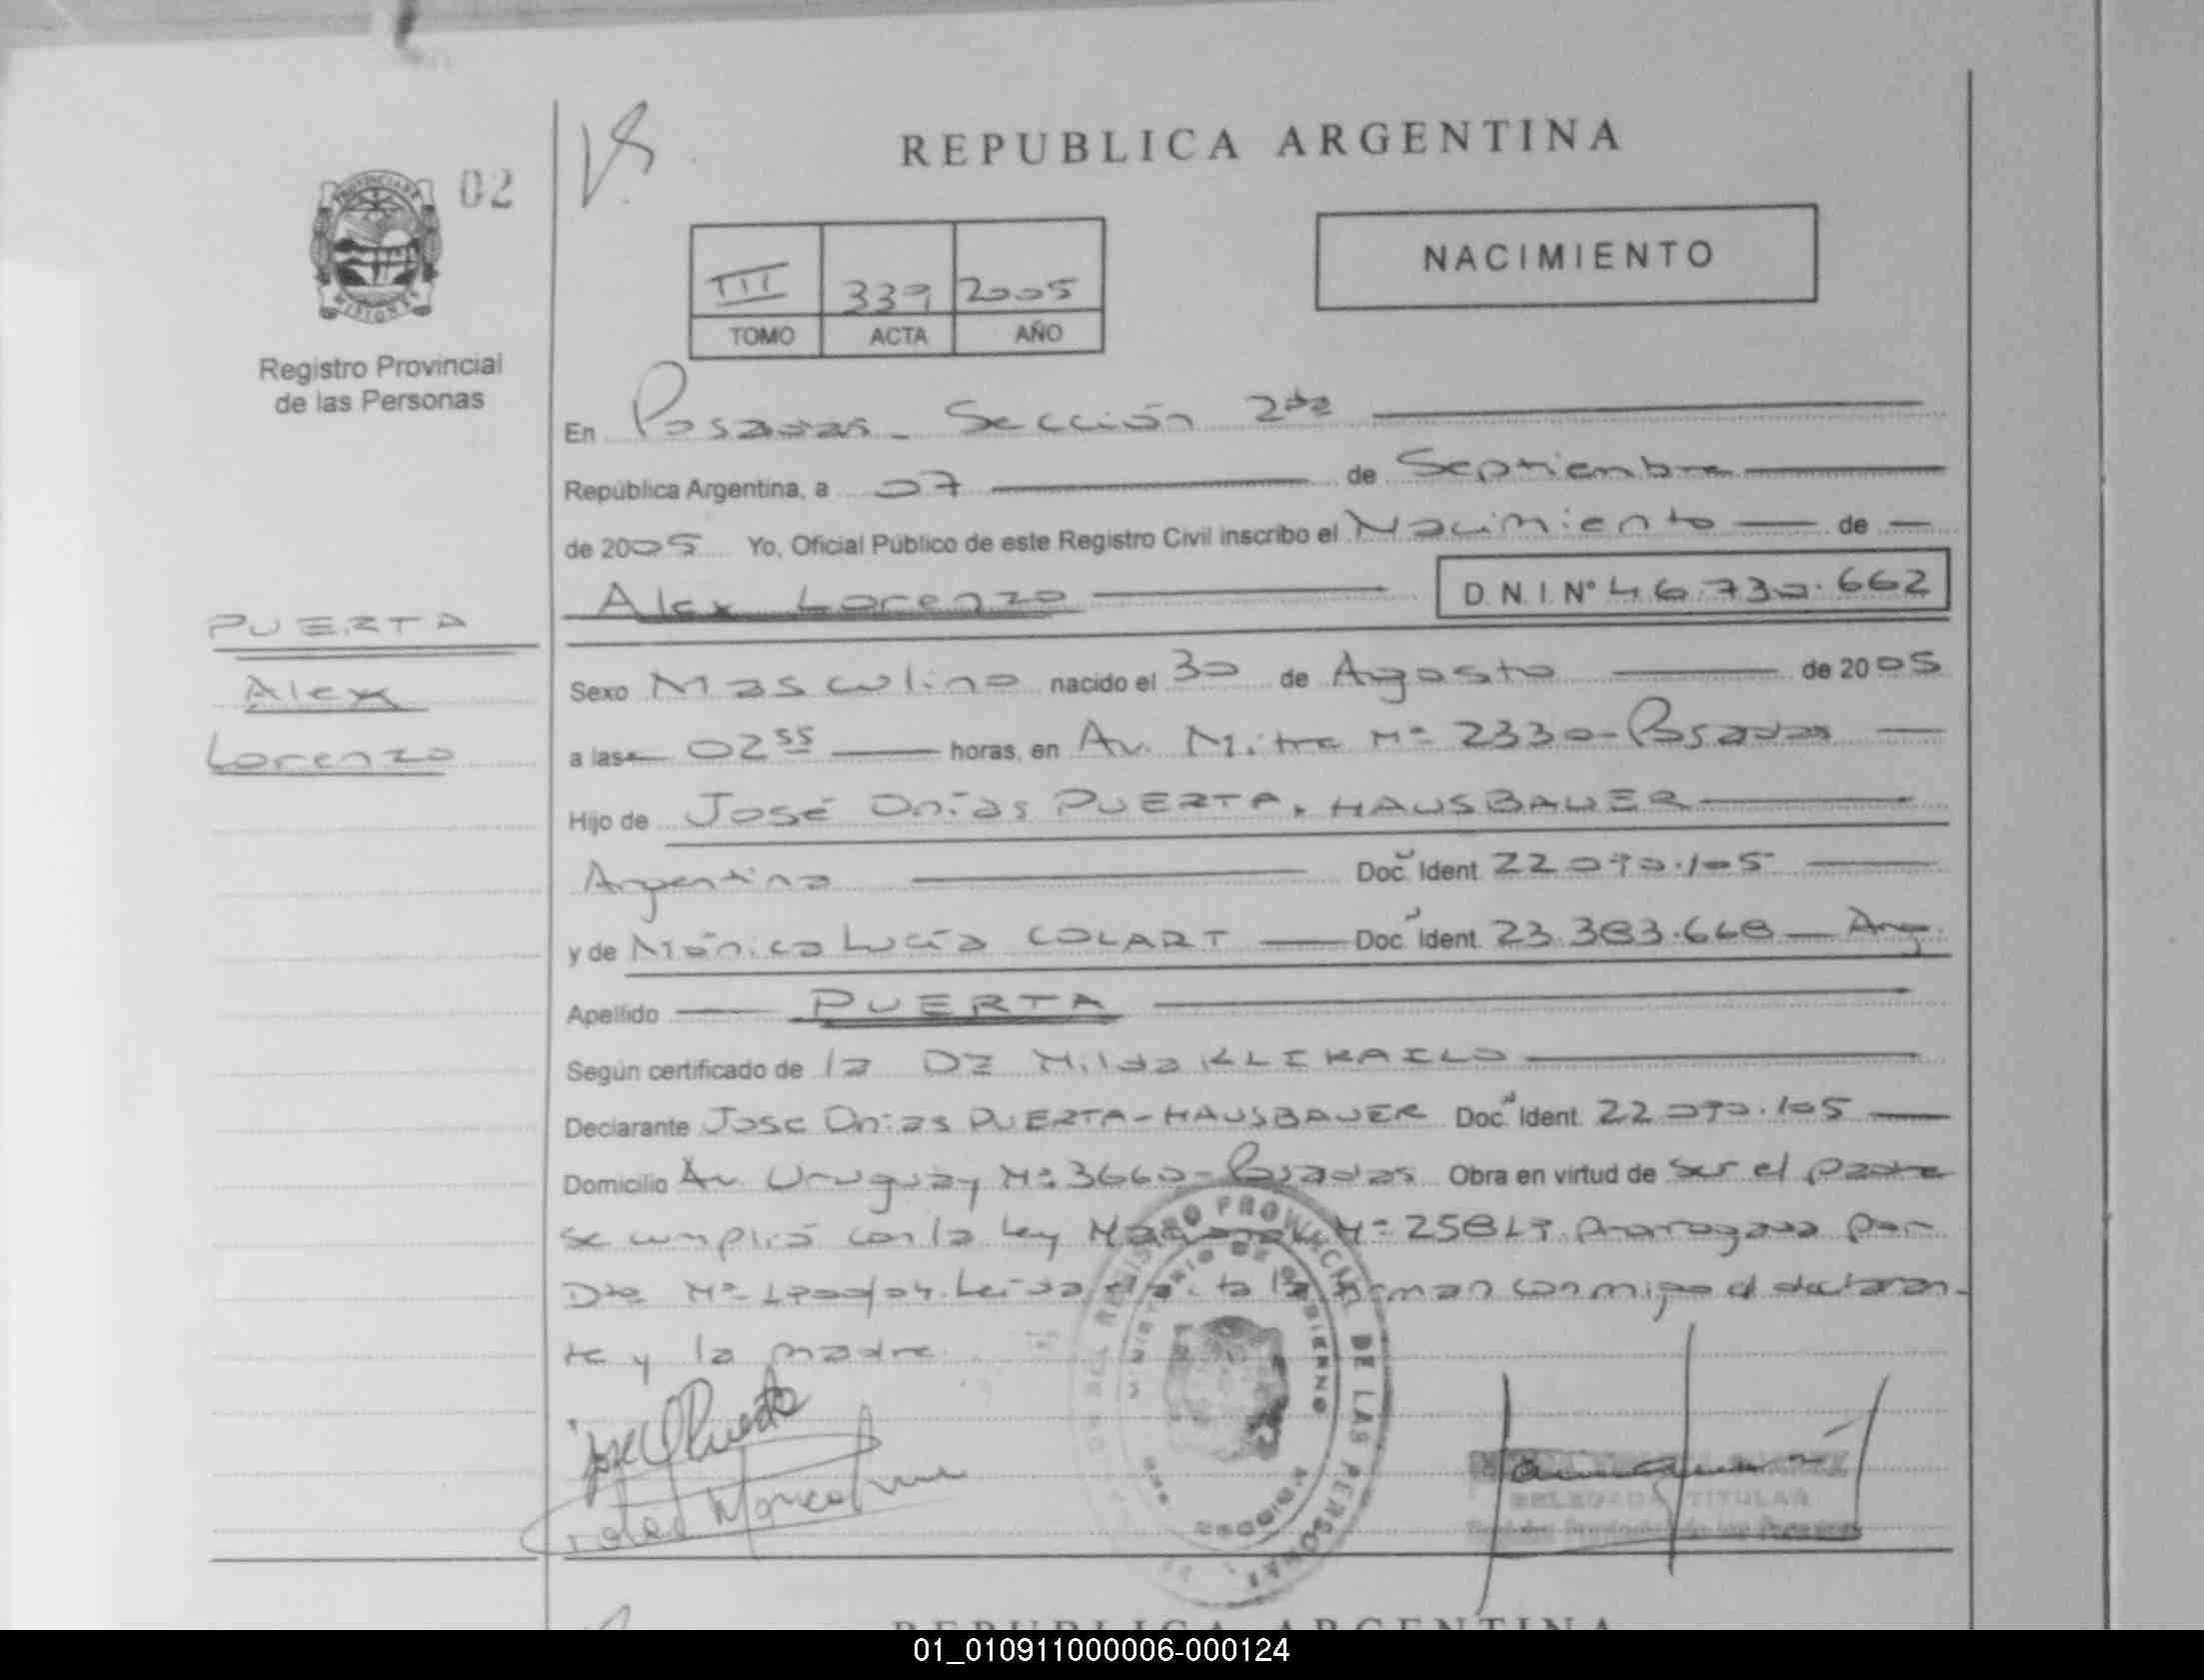 REPUBLICA ARGENTINA
02
NACIMIENTO
III 339 2005
TOMO ACTA AÑO
Registro Provincial
de las Personas
En Posadas - Sección 2da
República Argentina, a 07 de Septiembre
de 2005 Yo, Oficial Público de este Registro Civil inscribo el Nacimiento de
Alex Lorenzo D.N.I. Nº 46.730.662
PUERTA
Alex
Lorenzo
Sexo Masculino nacido el 30 de Agosto de 2005
a las 02 55 horas, en Av. Mitre Nº 2330 - Posadas
Hijo de José Onías PUERTA, HAUSBAUER
Argentina Doc. Ident 22.090.105
y de Mónica Lucía COLART Doc. Ident. 23.383.668 - Arg.
Apellido PUERTA
Según certificado de la Dra Hilda KLIKAILO
Declarante José Onías PUERTA - HAUSBAUER Doc. Ident. 22.090.105
Domicilio Av Uruguay Nº 3660 - Posadas Obra en virtud de ser el padre
se cumplió con la ley Nº 25819 prorrogada por
Dto Nº Leída el acta la firman conmigo el declaran-
te y la madre
REGISTRO PROVINCIAL DE LAS PERSONAS
MINISTERIO DE GOBIERNO
DELEGADA TITULAR
REPUBLICA ARGENTINA
01_010911000006-000124